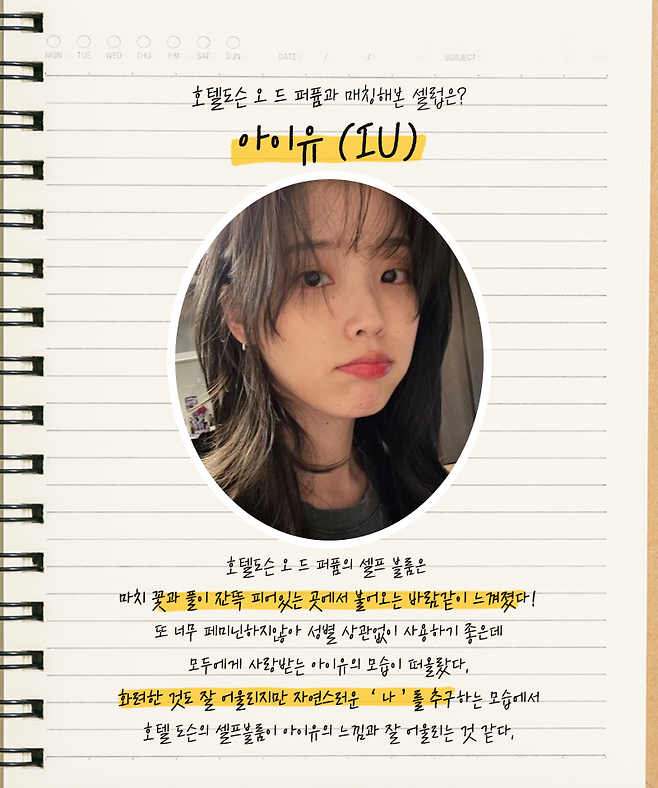 MON TUE WED THU FRI SAT SUN DATE : / / SUBJECT :
호텔도슨 오 드 퍼퓸과 매칭해본 셀럽은?
아이유 (IU)
호텔도슨 오 드 퍼퓸의 셀프 블룸은
마치 꽃과 풀이 잔뜩 피어있는 곳에서 불어오는 바람같이 느껴졌다!
또 너무 페미닌하지않아 성별 상관없이 사용하기 좋은데
모두에게 사랑받는 아이유의 모습이 떠올랐다.
화려한 것도 잘 어울리지만 자연스러운 ‘ 나 ’ 를 추구하는 모습에서
호텔 도슨의 셀프블룸이 아이유의 느낌과 잘 어울리는 것 같다.